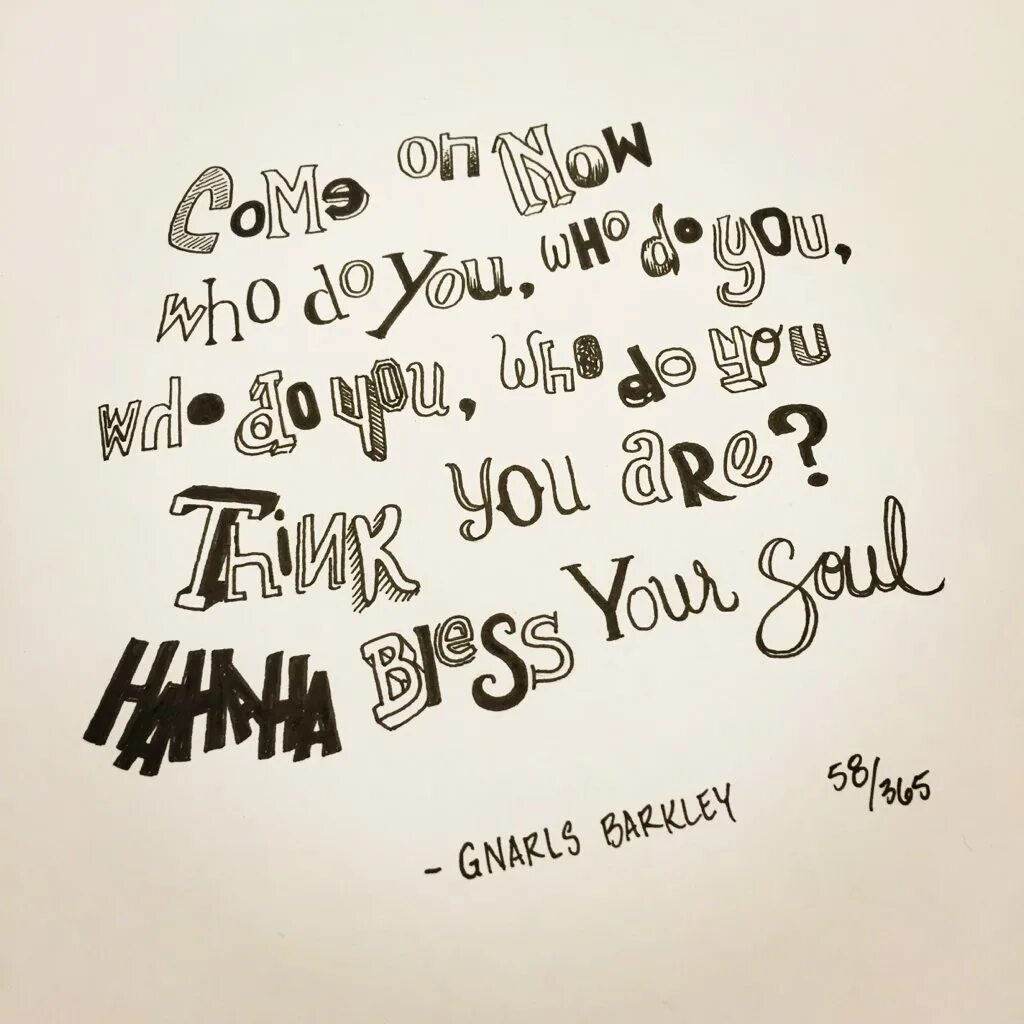 Come on Now
who do you, who do you,
who do you, who do you
Think you are?
HAHAHA Bless Your Soul
- GNARLS BARKLEY 58/365